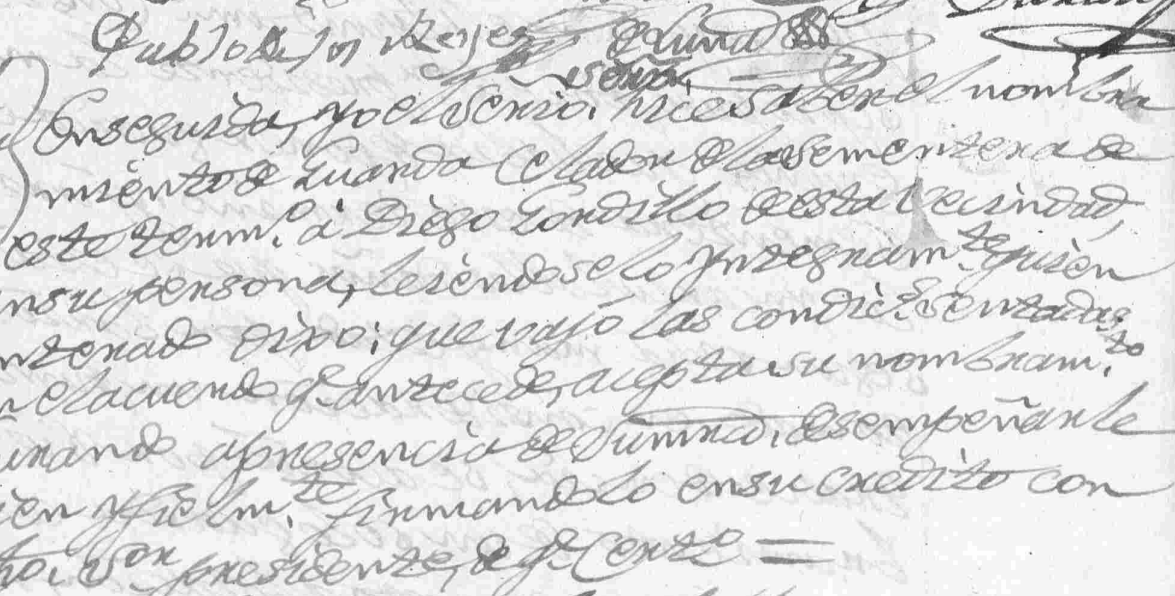 Pablo de los Reyes de Luna
Enseguida, yo el Serio. hice saber el nombra
miento de Guarda Celador de la sementera de
este term.o a Diego Gordillo de esta vecindad,
en su persona, leiendoselo Yntegram.te quien
enterado dixo; que vajo las condic.s sentadas
en el acuerdo q.e antecede, acepta su nombram.to
jurando a presencia de Sumrd. desempeñarle
bien y fielm.te firmandolo en su credito con
dho. Sor presidente, de q.e Certo =